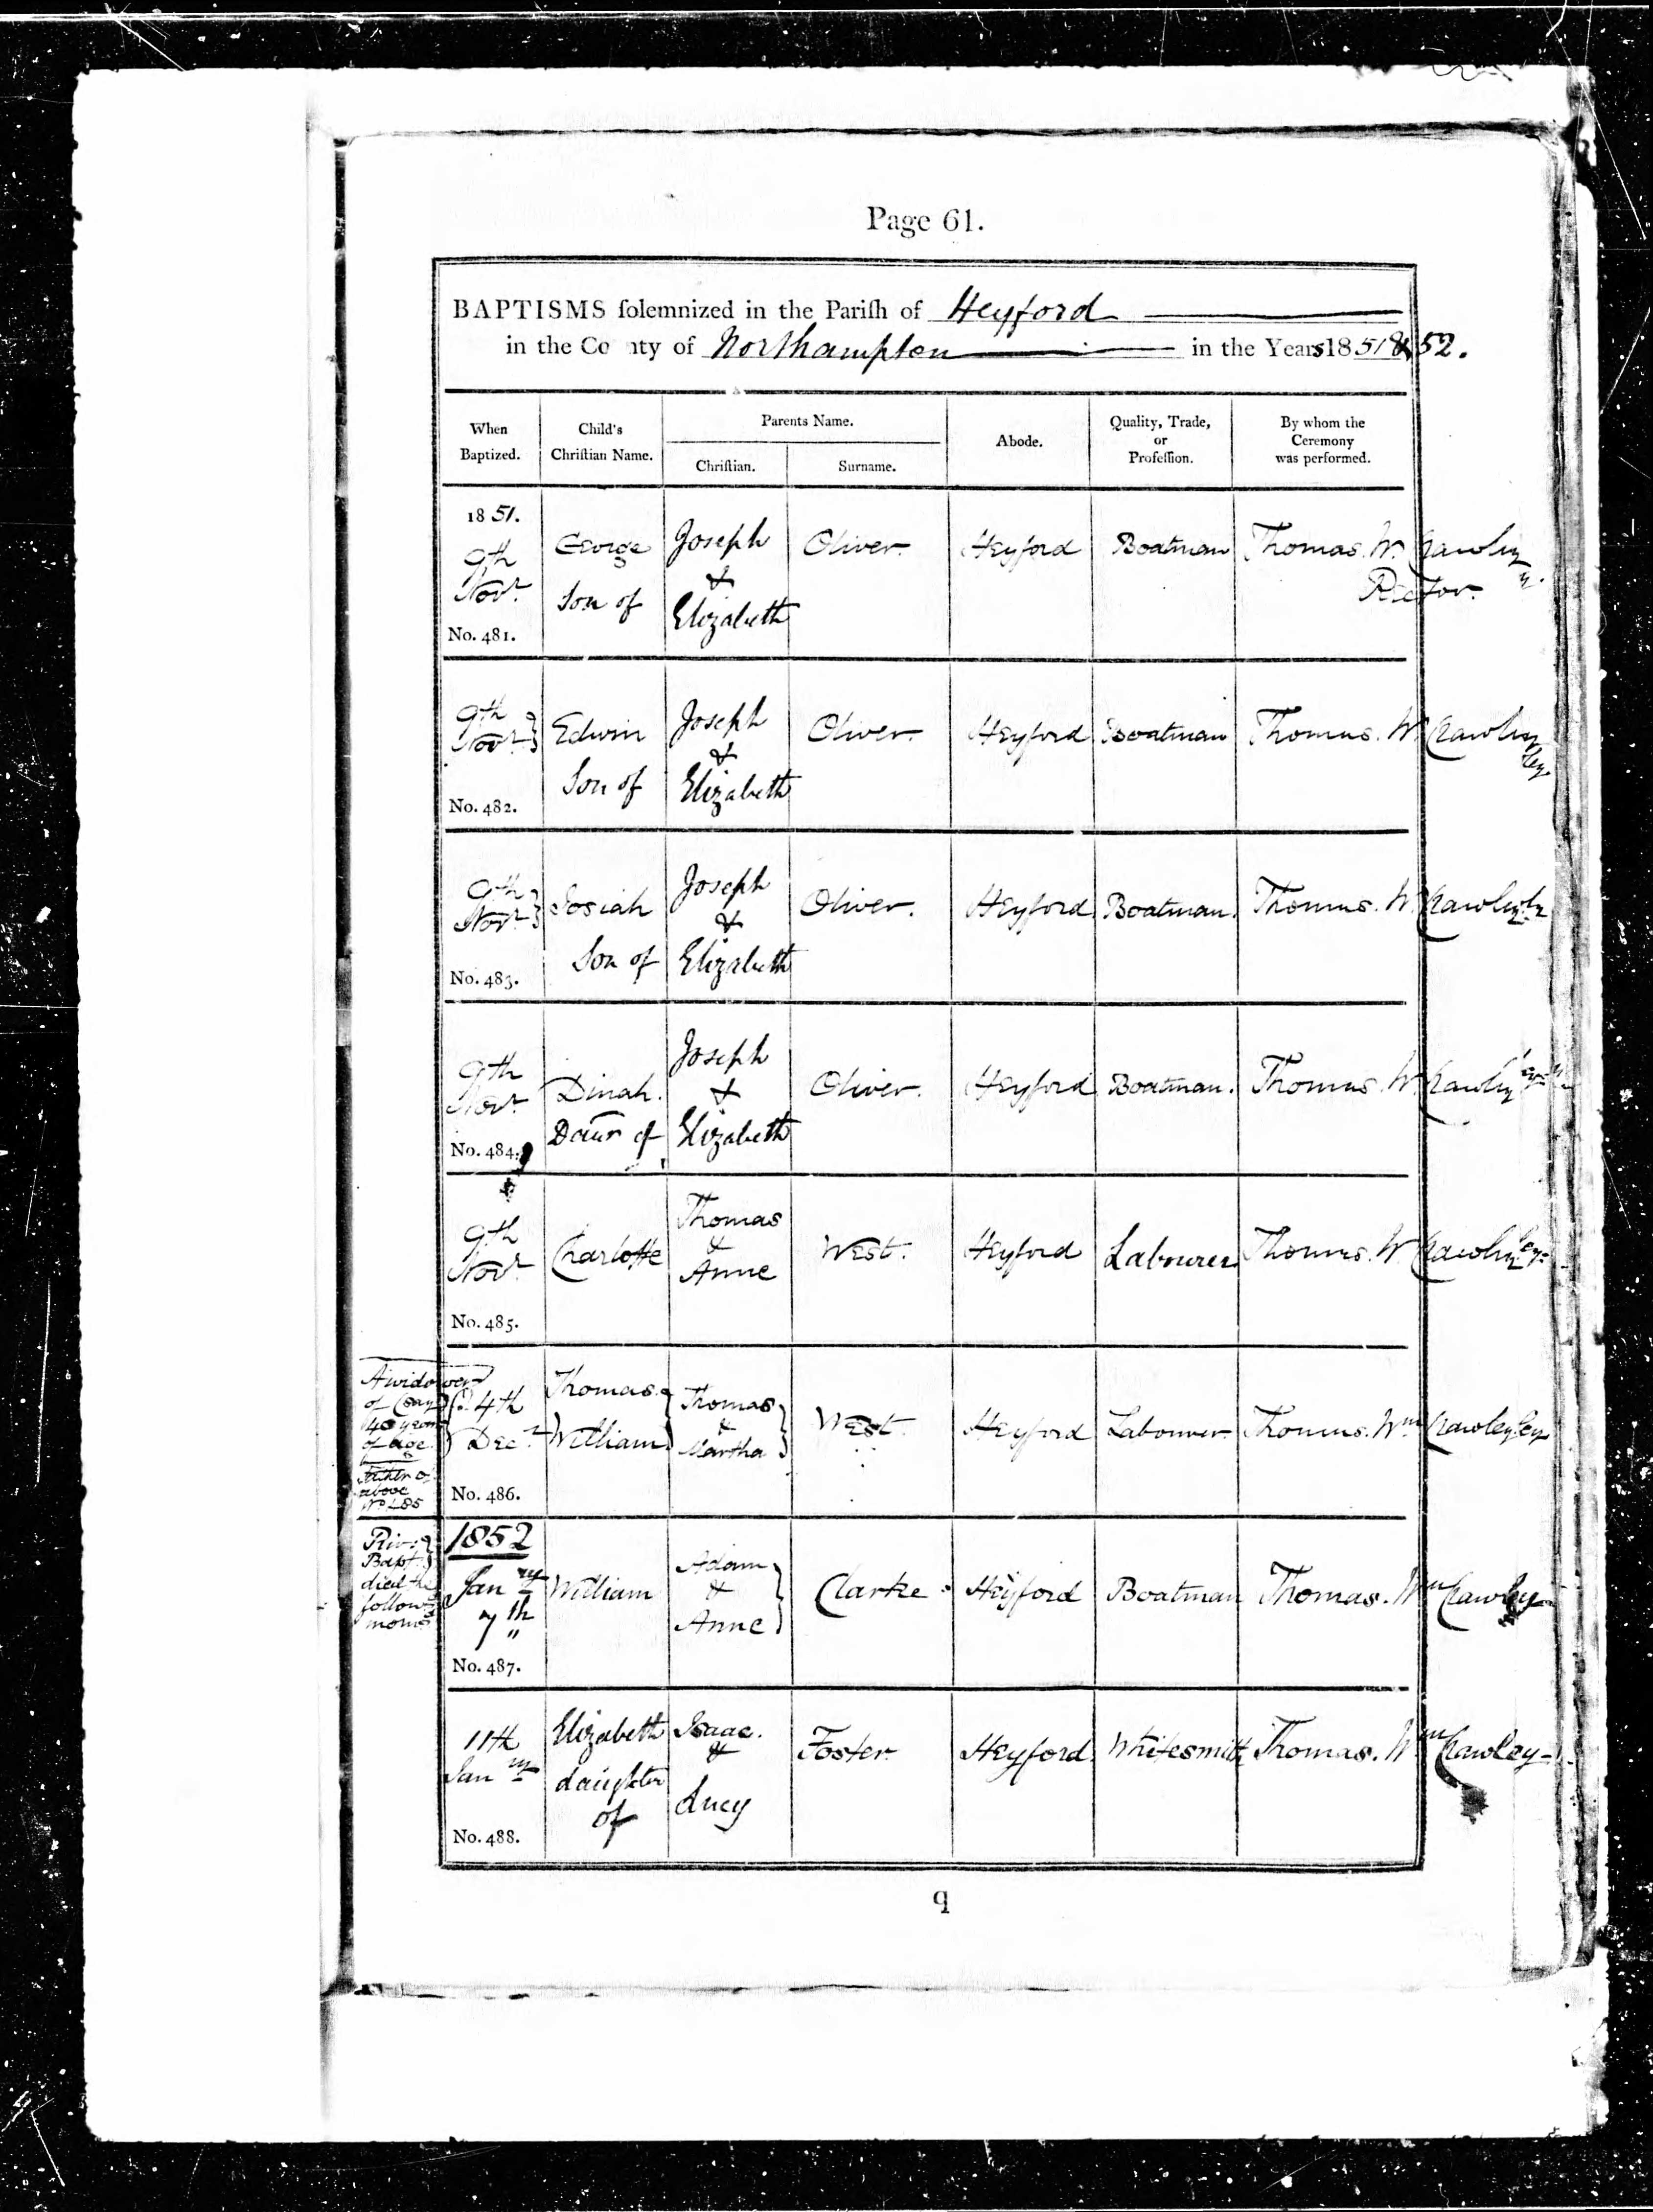 Page 61.
BAPTISMS ſolemnized in the Pariſh of Heyford
in the Co nty of Northampton in the Years 1851 & 52.
When
Baptized.
Child's
Chriſtian Name.
Parents Name.
Chriſtian.
Surname.
Abode.
Quality, Trade,
or
Profeſſion.
By whom the
Ceremony
was performed.
1851.
9th
Novr
No. 481.
George
Son of
Joseph
&
Elizabeth
Oliver.
Heyford
Boatman
Thomas. Wm Crawley
Rector.
9th
Novr
No. 482.
Edwin
Son of
Joseph
&
Elizabeth
Oliver.
Heyford
Boatman
Thomas. Wm Crawley
9th
Novr
No. 483.
Josiah
Son of
Joseph
&
Elizabeth
Oliver.
Heyford
Boatman.
Thomas. Wm Crawley
9th
Novr
No. 484.
Dinah.
Daur of
Joseph
&
Elizabeth
Oliver.
Heyford
Boatman.
Thomas. Wm Crawley
9th
Novr
No. 485.
Charlotte
Thomas
&
Anne
West.
Heyford
Labourer
Thomas. Wm Crawley
A widower
of (say)
40 years
of age.
Father of
above
No 485
4th
Decr
No. 486.
Thomas
William
Thomas
&
Martha
West.
Heyford
Labourer.
Thomas. Wm Crawley
Priv:
Bapt.
died the
follows
morng
1852
Jany
7th
No. 487.
William
Adam
&
Anne
Clarke
Heyford
Boatman
Thomas. Wm Crawley
11th
Jany
No. 488.
Elizabeth
daughter
of
Isaac.
&
Lucy
Foster.
Heyford
Whitesmith
Thomas. Wm Crawley
q